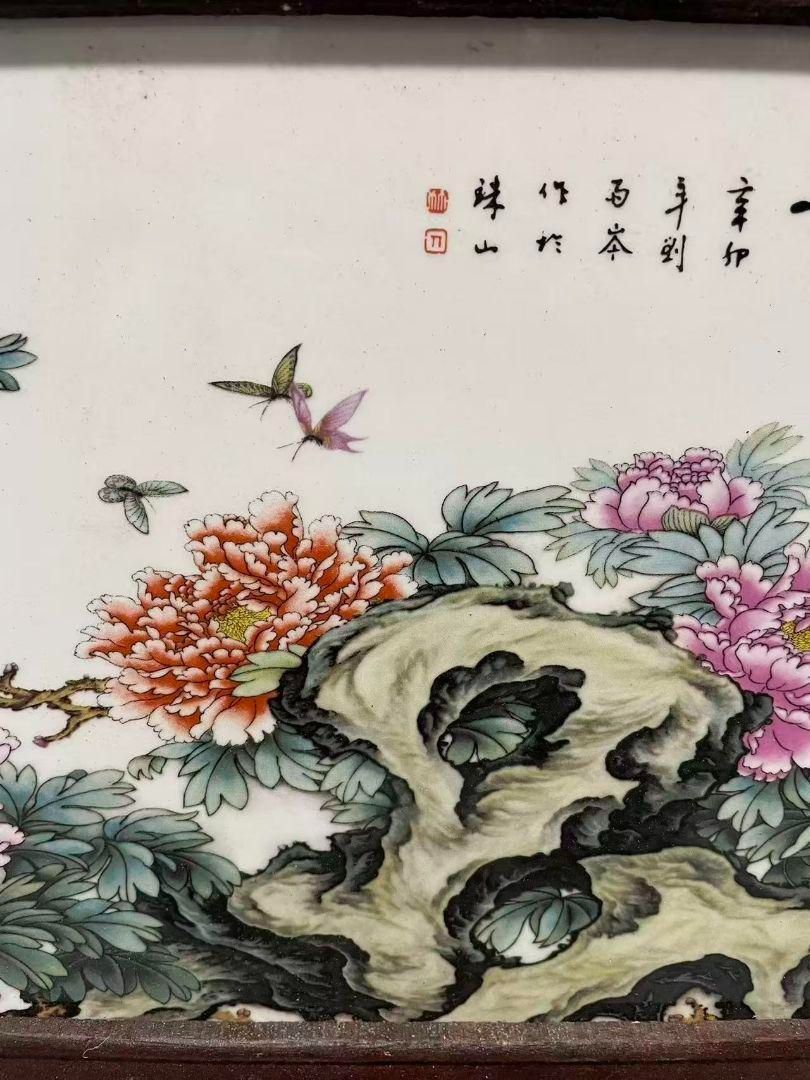 辛卯
年劉
雨岑
作於
珠山